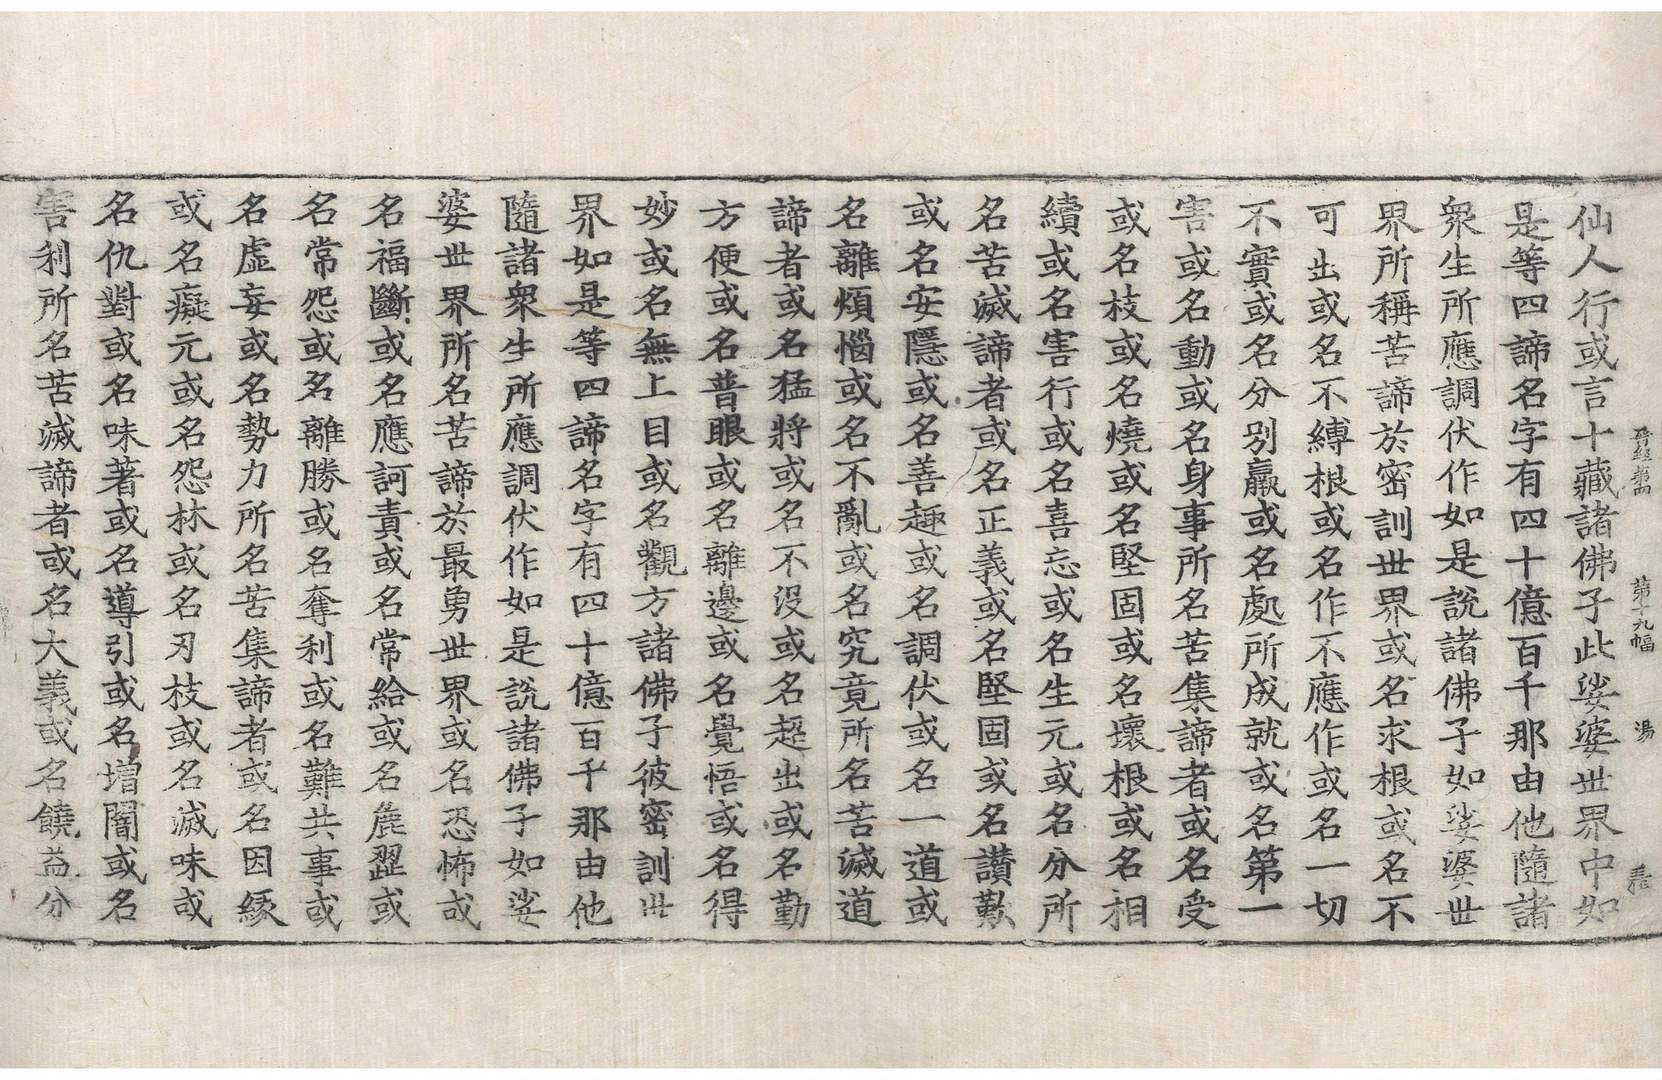 晉經第四 第十九幅 湯
仙人行或言十藏諸佛子此娑婆世界中如
是等四諦名字有四十億百千那由他隨諸
衆生所應調伏作如是說諸佛子如娑婆世
界所稱苦諦於密訓世界或名求根或名不
可出或名不縛根或名作不應作或名一切
不實或名分別羸或名處所成就或名第一
害或名動或名身事所名苦集諦者或名受
或名枝或名燒或名堅固或名壞根或名相
續或名害行或名喜忘或名生元或名分所
名苦滅諦者或名正義或名堅固或名讚歎
或名安隱或名善趣或名調伏或名一道或
名離煩惱或名不亂或名究竟所名苦滅道
諦者或名猛將或名不没或名超出或名勤
方便或名普眼或名離邊或名覺悟或名得
妙或名無上目或名觀方諸佛子彼密訓世
界如是等四諦名字有四十億百千那由他
隨諸衆生所應調伏作如是說諸佛子如娑
婆世界所名苦諦於最勇世界或名恐怖或
名福斷或名應訶責或名常給或名麁澀或
名常怨或名離勝或名奪利或名難共事或
名虛妄或名勢力所名苦集諦者或名因緣
或名癡元或名怨林或名刃枝或名滅味或
名仇對或名味著或名導引或名增闇或名
害利所名苦滅諦者或名大義或名饒益分